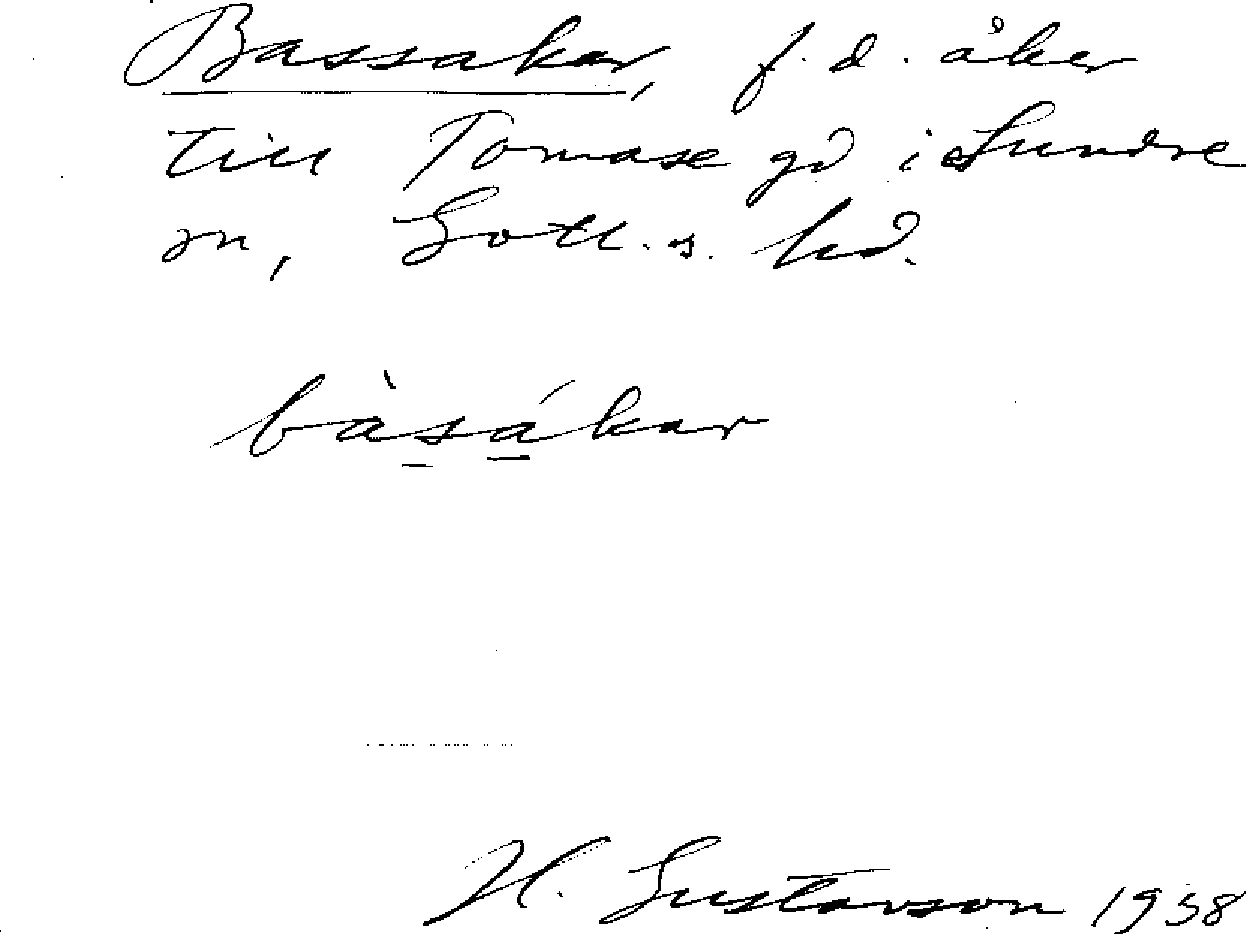 Bassakar, f.d. åker
till Tomase gd i Sundre
sn, Gotl. s. hd.
bàsákar
H. Gustavson 1938